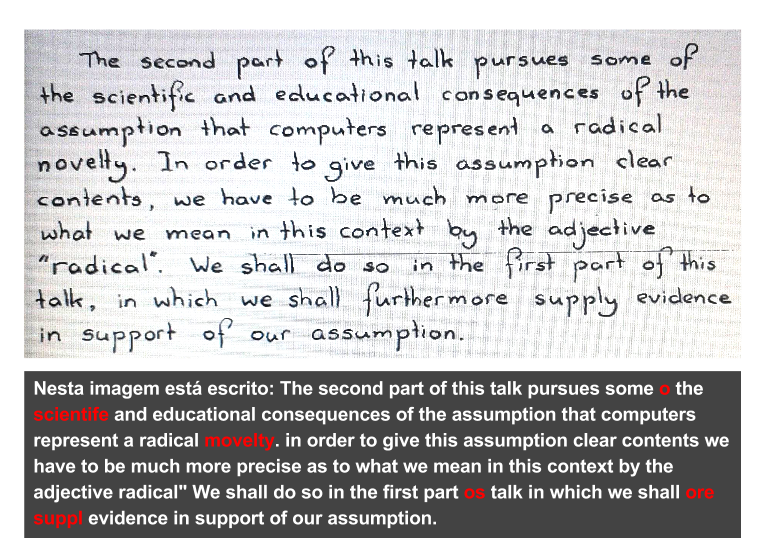 The second part of this talk pursues some of
the scientific and educational consequences of the
assumption that computers represent a radical
novelty. In order to give this assumption clear
contents, we have to be much more precise as to
what we mean in this context by the adjective
"radical". We shall do so in the first part of this
talk, in which we shall furthermore supply evidence
in support of our assumption.
Nesta imagem está escrito: The second part of this talk pursues some o the
scientife and educational consequences of the assumption that computers
represent a radical movelty. in order to give this assumption clear contents we
have to be much more precise as to what we mean in this context by the
adjective radical" We shall do so in the first part os talk in which we shall ore
suppl evidence in support of our assumption.